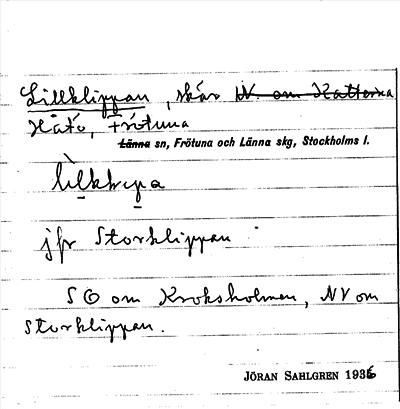 Lillklippan, skär N. om Katterna
Hätö, Frötuna
Länna sn, Frötuna och Länna skg, Stockholms l.
jfr Storklippan
SO om Kroksholmen, NV om
Storklippan.
JÖRAN SAHLGREN 1936